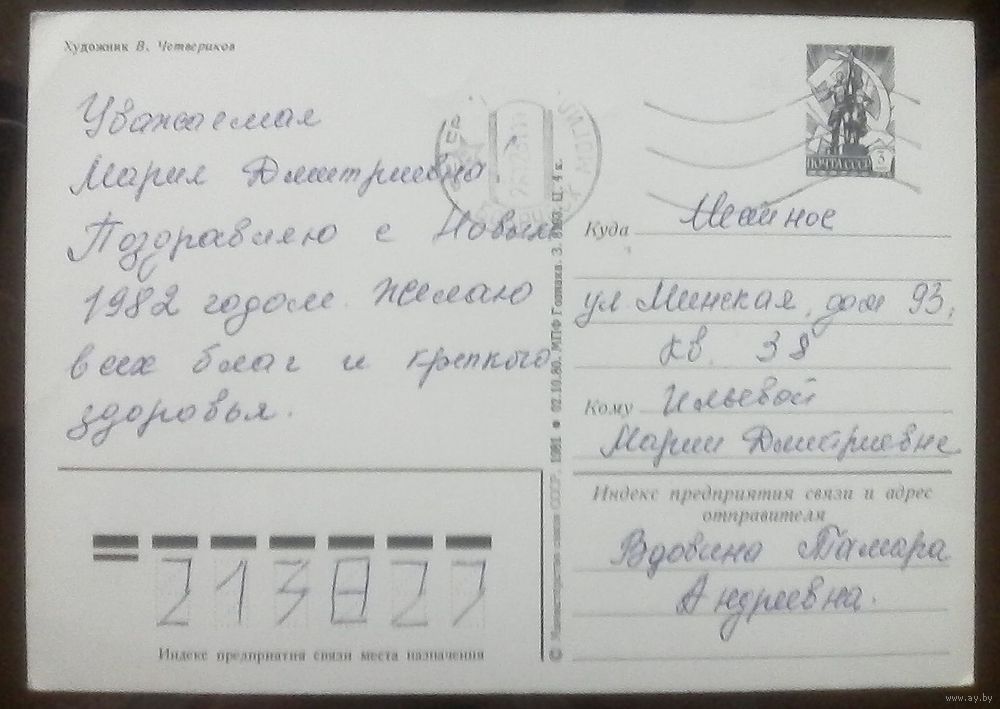 Художник В. Четвериков
Уважаемая
Мария Дмитриевна
Поздравляю с Новым
1982 годом. Желаю
всех благ и крепкого
здоровья.
ПОЧТА СССР 3
Куда Местное
ул Минская, дом 93,
кв. 38
Кому Ильевой
Марии Дмитриевне
Индекс предприятия связи и адрес
отправителя
Вдовина Тамара
Андреевна.
213827
Индекс предприятия связи места назначения
© Министерство связи СССР. 1981 ● 02.10.80. МПФ Гознака. З. Ц. 4 к.
www.ay.by